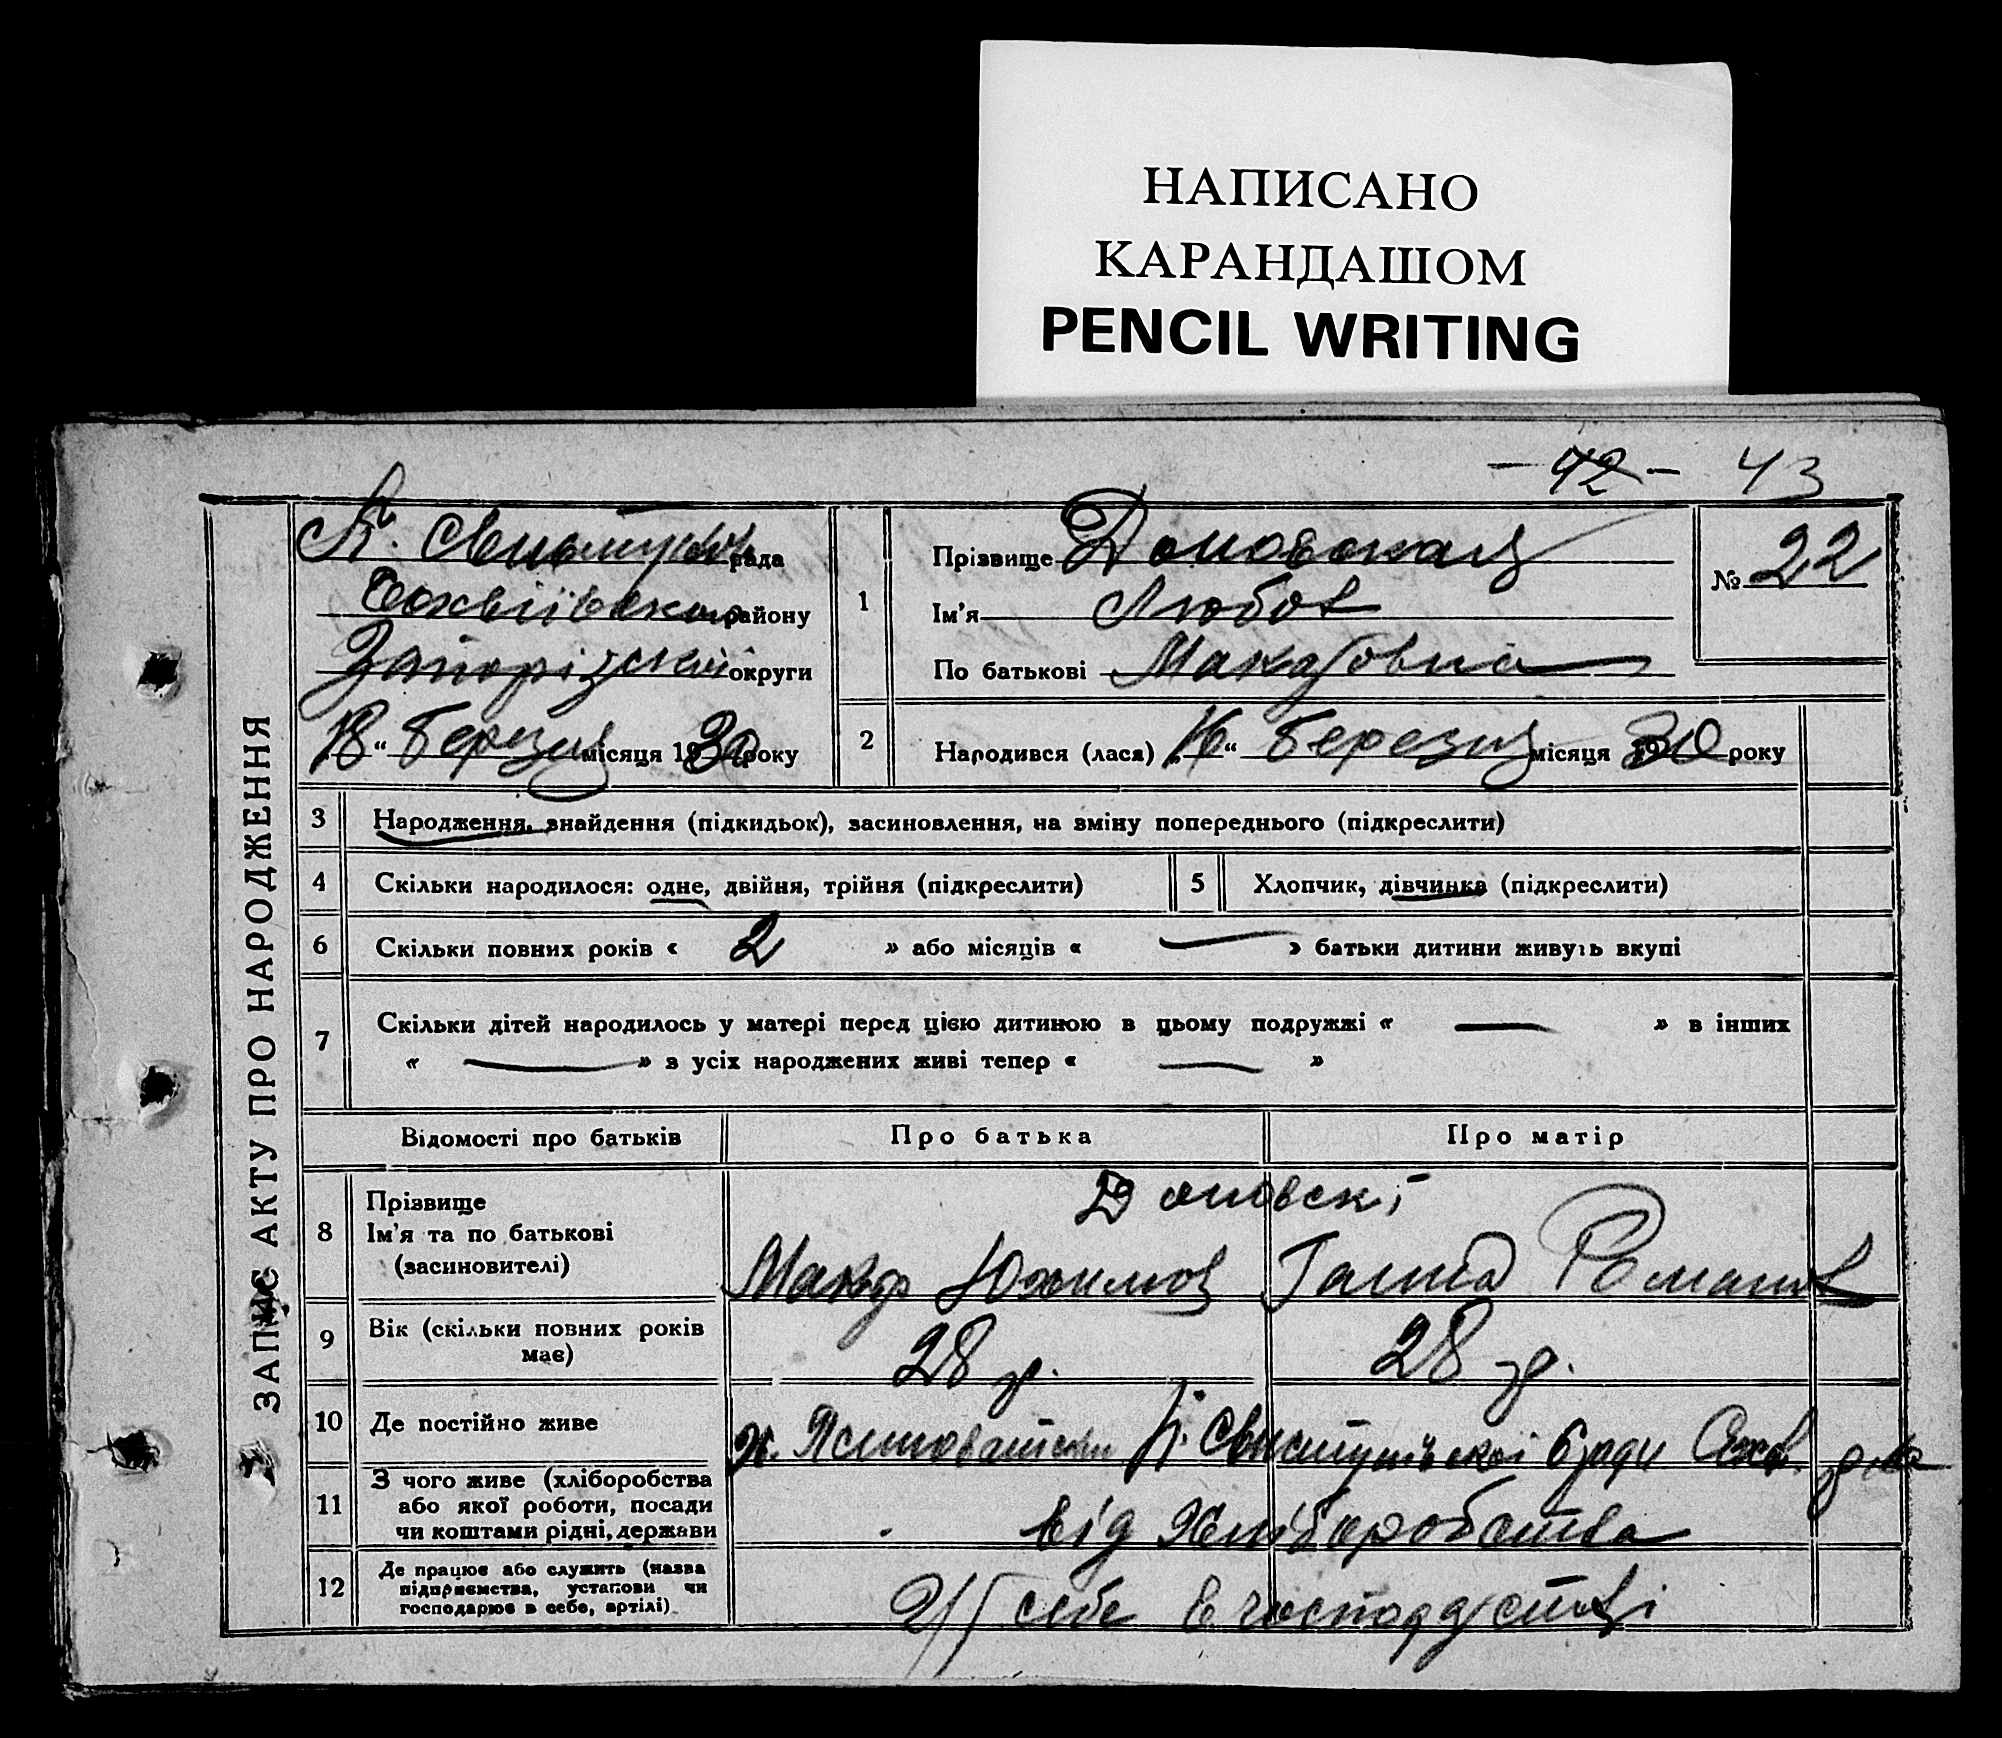 НАПИСАНО
КАРАНДАШОМ
PENCIL WRITING
— 42 — 43
ЗАПИС АКТУ ПРО НАРОДЖЕННЯ
рада
району
Запорізької округи
18 “ березня місяця 1930 року
1
Прізвище
Ім'я Любов
По батькові Макаровна
№ 22
2
Народився (лася) „ 16 “ березня місяця 1930 року
3 Народження, знайдення (підкидьок), засиновлення, на зміну попереднього (підкреслити)
4 Скільки народилося: одне, двійня, трійня (підкреслити) 5 Хлопчик, дівчинка (підкреслити)
6 Скільки повних років « 2 » або місяців « — » батьки дитини живуть вкупі
7 Скільки дітей народилось у матері перед цією дитиною в цьому подружжі « — » в інших
« — » з усіх народжених живі тепер « — »
Відомості про батьків Про батька Про матір
8 Прізвище
Ім'я та по батькові
(засиновителі)
Макар Юхимов Ганна Роман
9 Вік (скільки повних років
має)
28 р. 28 р.
10 Де постійно живе
11 З чого живе (хліборобства
або якої роботи, посади
чи коштами рідні, держави
від Хліборобства
12 Де працює або служить (назва
підприємства, установи чи
господарює в себе, артілі)
себе в господарстві